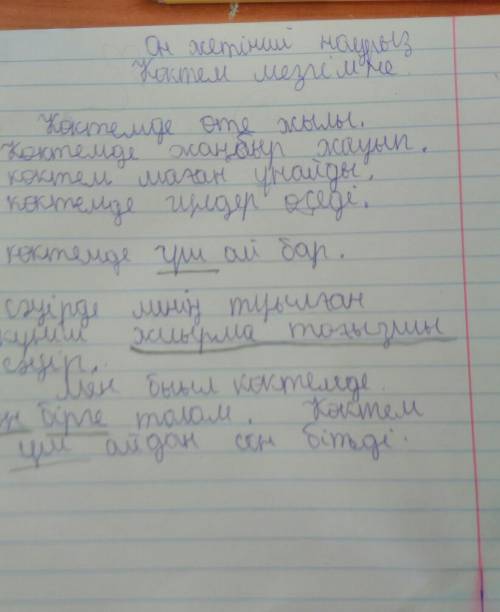 Он жетінші наурыз
Көктем мезгіліне
Көктемде өте жылы.
Көктемде жаңбыр жауып.
көктем маған ұнайды.
көктемде гүлдер өседі.
көктемде үш ай бар.
сәуірде менің туылған
күнім жиырма тоғызшы
сәуір.
Мен быыл көктемде
он бірге толам. Көктем
үш айдан сең бітеді.